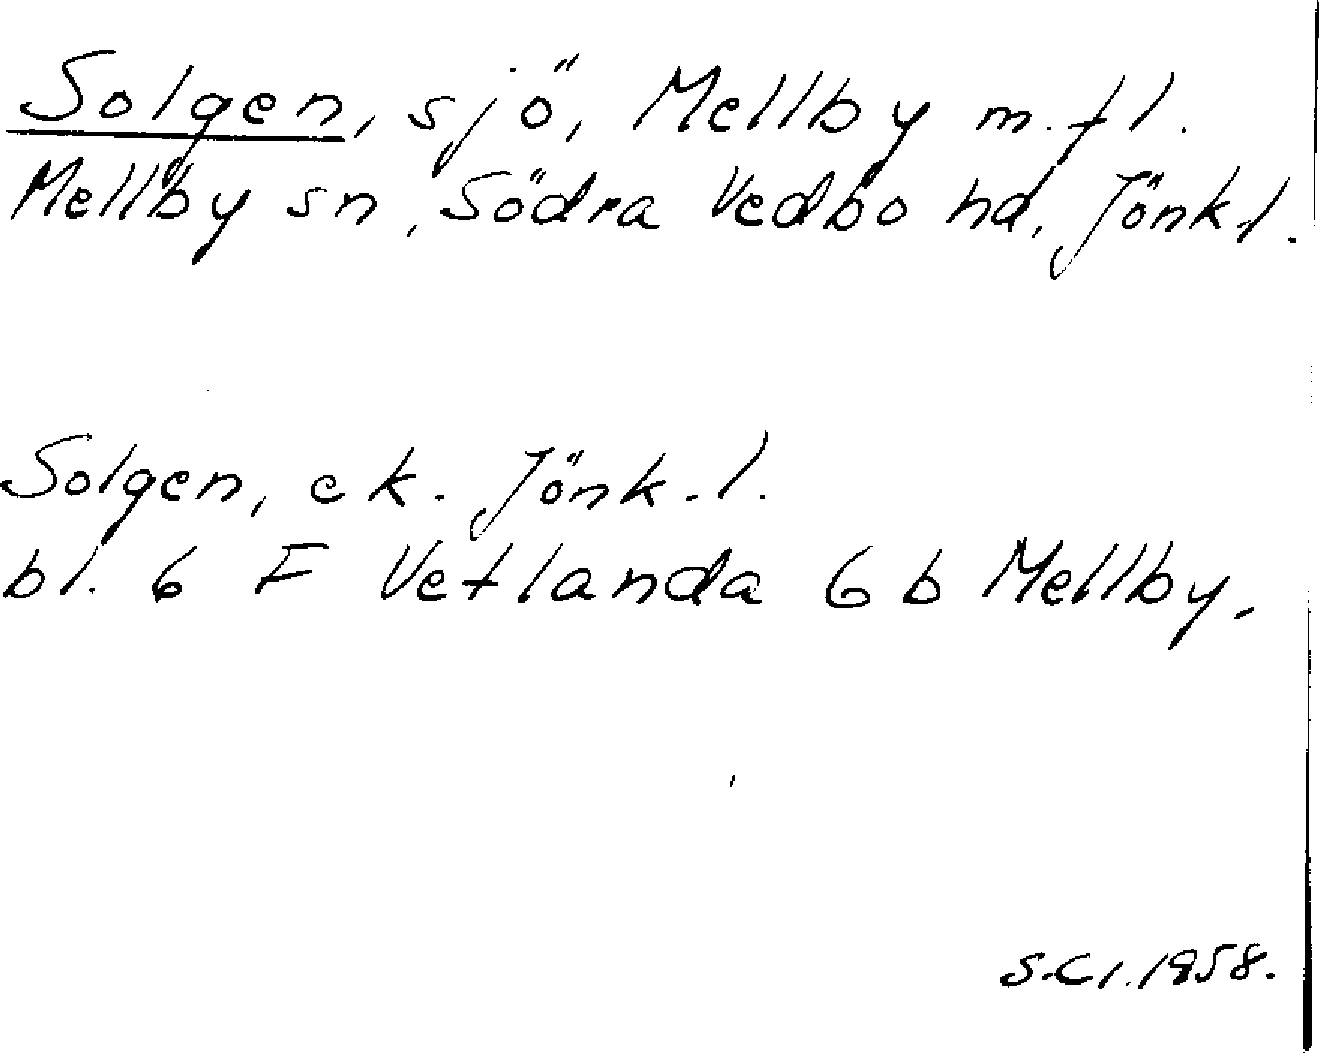 Solgen, sjö, Mellby m.fl.
Mellby sn, Södra Vedbo hd, Jönk.l.
Solgen, ek. Jönk.l.
bl. 6 F Vetlanda 6 b Mellby.
S.Cl. 1958.